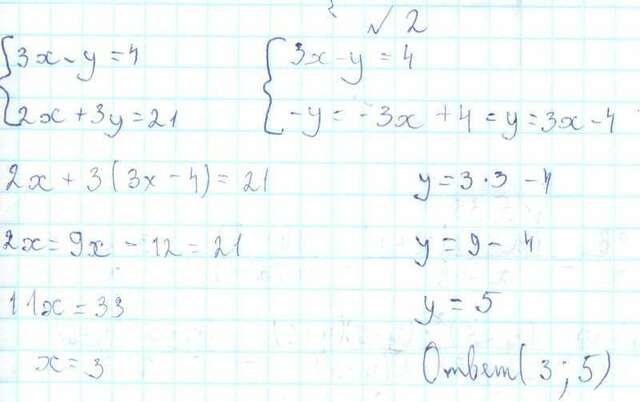 √ 2
{3x - y = 4
2x + 3y = 21
{3x - y = 4
-y = -3x + 4 = y = 3x - 4
2x + 3(3x - 4) = 21
2x = 9x - 12 = 21
11x = 33
x = 3
y = 3 · 3 - 4
y = 9 - 4
y = 5
Ответ(3; 5)